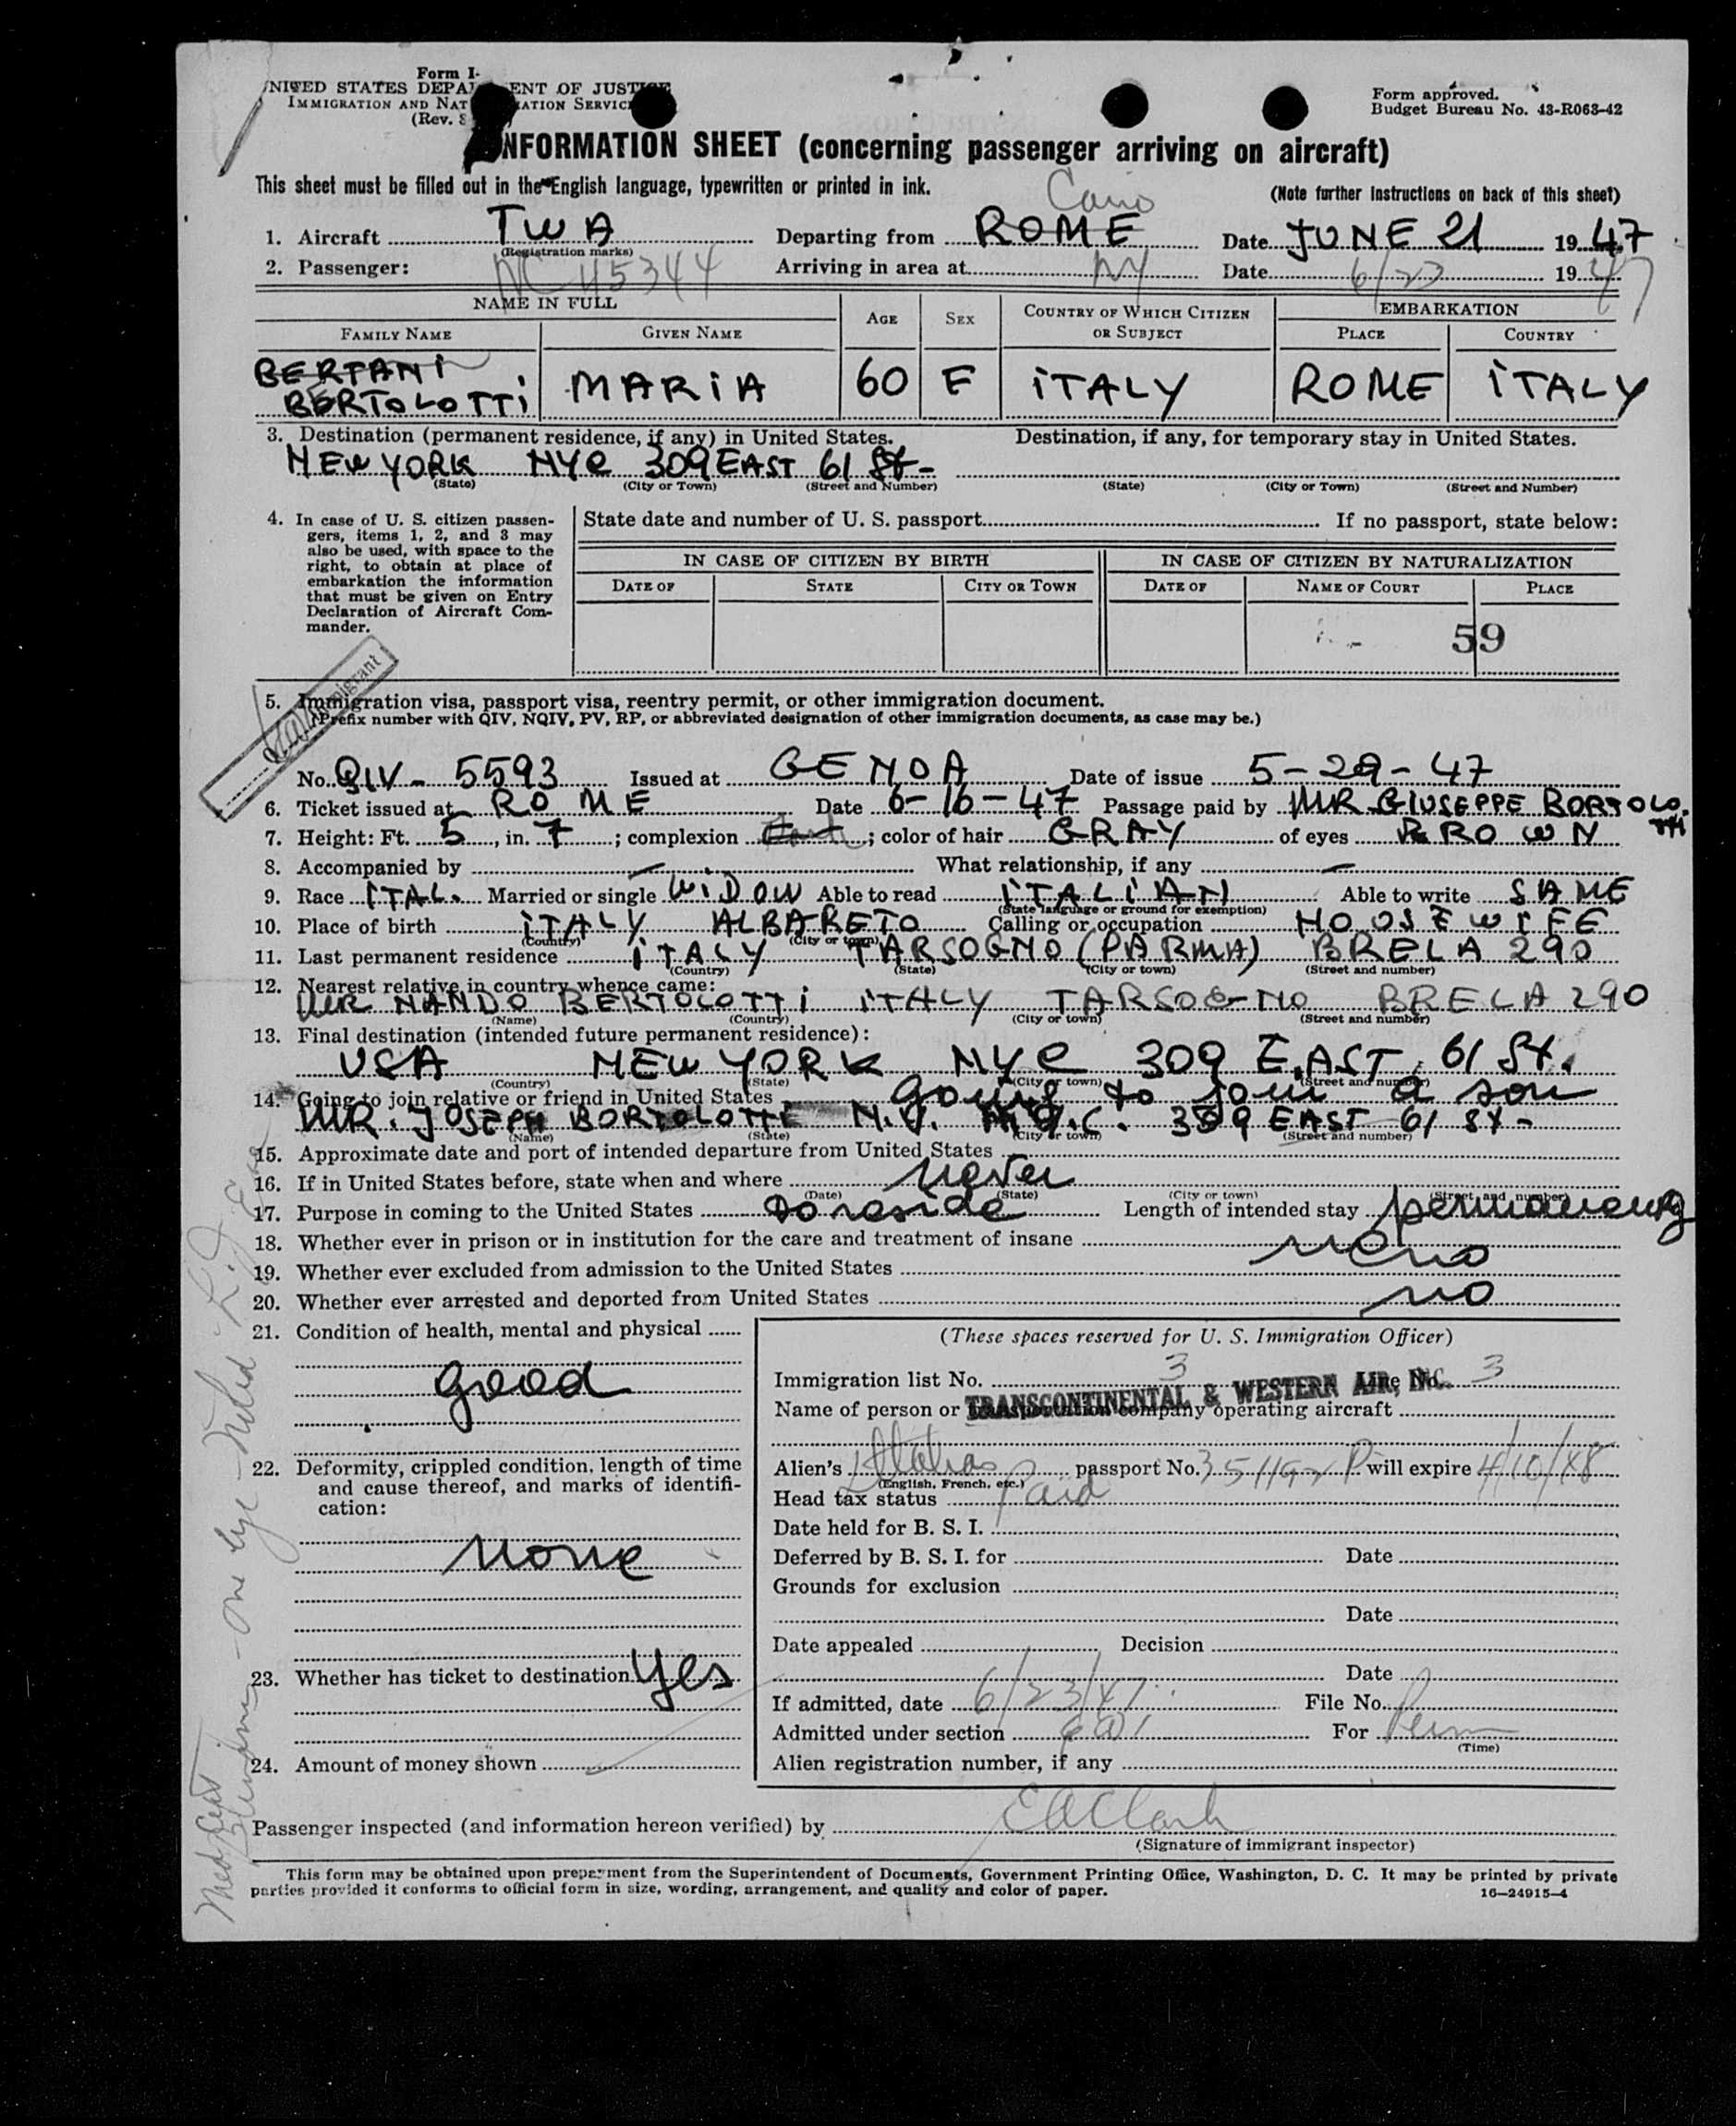 Form I-
UNITED STATES DEPA ENT OF JUSTICE
IMMIGRATION AND NAT ATION SERVICE
(Rev. 8
Form approved.
Budget Bureau No. 43-R063-42
INFORMATION SHEET (concerning passenger arriving on aircraft)
This sheet must be filled out in the English language, typewritten or printed in ink.
(Note further instructions on back of this sheet)
Cairo
1. Aircraft TWA Departing from ROME Date JUNE 21 1947
(Registration marks)
2. Passenger: NC 45344 Arriving in area at NY Date 6/23 1947
NAME IN FULL AGE SEX COUNTRY OF WHICH CITIZEN OR SUBJECT EMBARKATION
FAMILY NAME GIVEN NAME PLACE COUNTRY
BERTANI
BERTOLOTTI MARIA 60 F ITALY ROME ITALY
3. Destination (permanent residence, if any) in United States. Destination, if any, for temporary stay in United States.
NEW YORK NYC 309 EAST 61 St-
(State) (City or Town) (Street and Number) (State) (City or Town) (Street and Number)
4. In case of U. S. citizen passen-
gers, items 1, 2, and 3 may
also be used, with space to the
right, to obtain at place of
embarkation the information
that must be given on Entry
Declaration of Aircraft Com-
mander.
State date and number of U. S. passport If no passport, state below:
IN CASE OF CITIZEN BY BIRTH IN CASE OF CITIZEN BY NATURALIZATION
DATE OF STATE CITY OR TOWN DATE OF NAME OF COURT PLACE
59
5. Immigration visa, passport visa, reentry permit, or other immigration document.
(Prefix number with QIV, NQIV, PV, RP, or abbreviated designation of other immigration documents, as case may be.)
No. QIV- 5593 Issued at GENOA Date of issue 5-29-47
6. Ticket issued at ROME Date 6-16-47 Passage paid by MR GIUSEPPE BORTOLO
TTI
7. Height: Ft. 5, in. 7; complexion ; color of hair GRAY of eyes BROWN
8. Accompanied by — What relationship, if any —
9. Race ITAL. Married or single WIDOW Able to read ITALIAN Able to write SAME
(State language or ground for exemption)
10. Place of birth ITALY ALBARETO Calling or occupation HOOSEWIFE
(Country) (City or town)
11. Last permanent residence ITALY TARSOGNO (PARMA) BRELA 290
(Country) (State) (City or town) (Street and number)
12. Nearest relative in country whence came:
MR NANDO BERTOLOTTI ITALY TARSOGNO BRELA 290
(Name) (Country) (City or town) (Street and number)
13. Final destination (intended future permanent residence):
USA NEW YORK NYC 309 EAST 61 St.
(Country) (State) (City or town) (Street and number)
14. Going to join relative or friend in United States going to join a son
MR. JOSEPH BORTOLOTTI N.Y. N.Y.C. 309 EAST 61 ST-
(Name) (State) (City or town) (Street and number)
15. Approximate date and port of intended departure from United States
16. If in United States before, state when and where never
(Date) (State) (City or town) (Street and number)
17. Purpose in coming to the United States to reside Length of intended stay
18. Whether ever in prison or in institution for the care and treatment of insane no
19. Whether ever excluded from admission to the United States no
20. Whether ever arrested and deported from United States no
21. Condition of health, mental and physical
good
22. Deformity, crippled condition, length of time
and cause thereof, and marks of identifi-
cation:
none
23. Whether has ticket to destination yes
24. Amount of money shown
(These spaces reserved for U. S. Immigration Officer)
Immigration list No. 3 Line No. 3
TRANSCONTINENTAL & WESTERN AIR, INC.
Name of person or transportation company operating aircraft
Alien's Italian passport No. will expire 4/10/48
(English, French, etc.)
Head tax status Paid
Date held for B. S. I.
Deferred by B. S. I. for Date
Grounds for exclusion
Date
Date appealed Decision
Date
If admitted, date 6/23/47 File No.
Admitted under section For Perm
(Time)
Alien registration number, if any
Passenger inspected (and information hereon verified) by EAClark
(Signature of immigrant inspector)
This form may be obtained upon prepayment from the Superintendent of Documents, Government Printing Office, Washington, D. C. It may be printed by private
parties provided it conforms to official form in size, wording, arrangement, and quality and color of paper.
16—24915-4
Med Cert